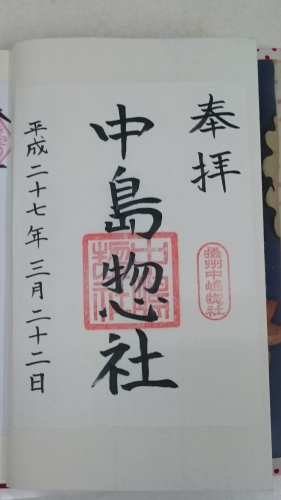 奉拝
摂州中嶋惣社
中島惣社
平成二十七年三月二十二日